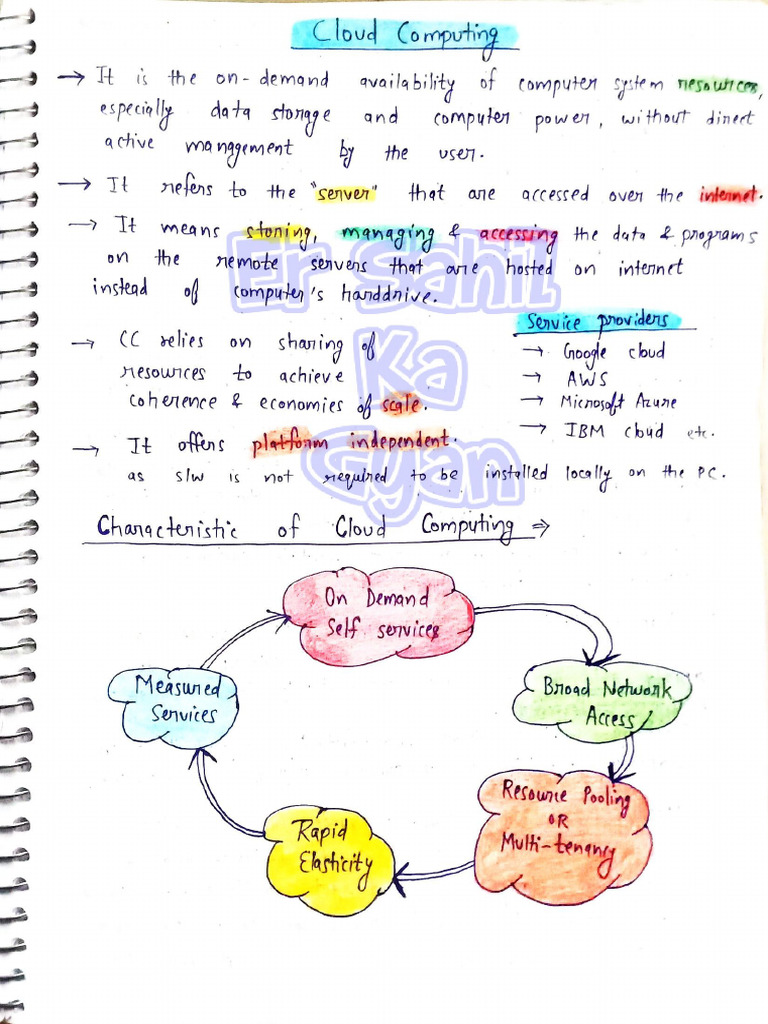 Cloud Computing
→ It is the on-demand availability of computer system resources,
especially data storage and computer power, without direct
active management by the user.
→ It refers to the "server" that are accessed over the internet.
→ It means storing, managing & accessing the data & programs
on the remote servers that are hosted on internet
instead of computer's harddrive.
→ CC relies on sharing of
resources to achieve
coherence & economies of scale.
Service providers
→ Google cloud
→ AWS
→ Microsoft Azure
→ IBM cloud etc.
→ It offers platform independent.
as s/w is not required to be installed locally on the PC.
Er Sahil
Ka
Gyan
Characteristic of Cloud Computing ⇒
On Demand
Self services
Broad Network
Access
Resource Pooling
OR
Multi-tenancy
Rapid
Elasticity
Measured
Services